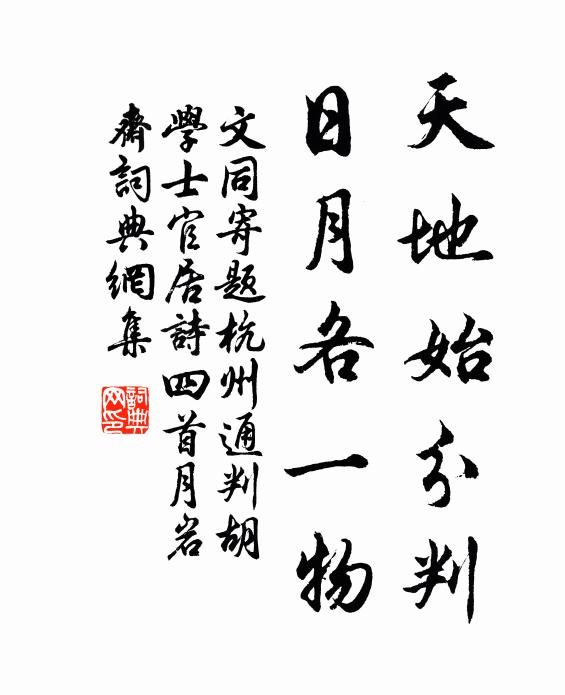 天地始分判
日月各一物
文同寄题杭州通判胡
學士官居詩四首月岩
齋詞典網集
詞典
网印